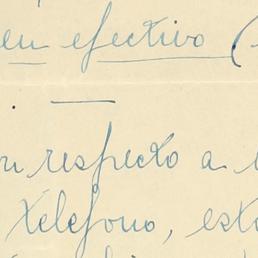 en efectivo (
con respecto a
telefono, est